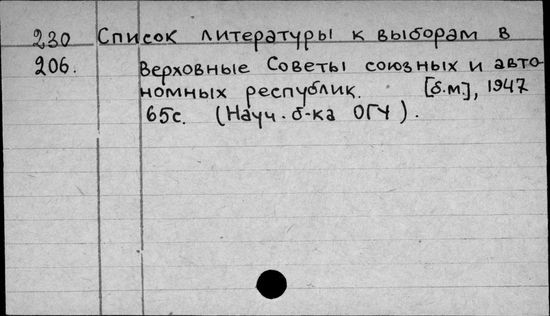 230 Список литературы к выборам в
206. Верховные Советы союзных и авто-
номных республик. [б.м.], 1947
65с. (Науч. б-ка ОГУ).